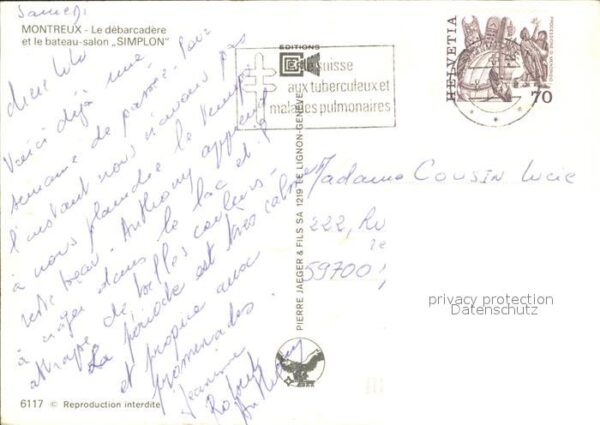 Samedi
MONTREUX - Le débarcadère
et le bateau-salon „SIMPLON"
chère Lulu
Voici déjà une
semaine de passée. Pour
l'instant nous n'avons pas
à nous plaindre le temps
reste beau. Anthony apprend
à nager dans le lac et il
attrape de belles couleurs.
La période est très calme
et propice aux
promenades.
Jeannine
Anthony
6117 © Reproduction interdite
EDITIONS
PIERRE JAEGER & FILS SA 1219 LE LIGNON-GENEVE
suisse
aux tuberculeux et
malades pulmonaires
HELVETIA
70
Madame COUSIN Lucie
222, Ru
59700
privacy protection
Datenschutz